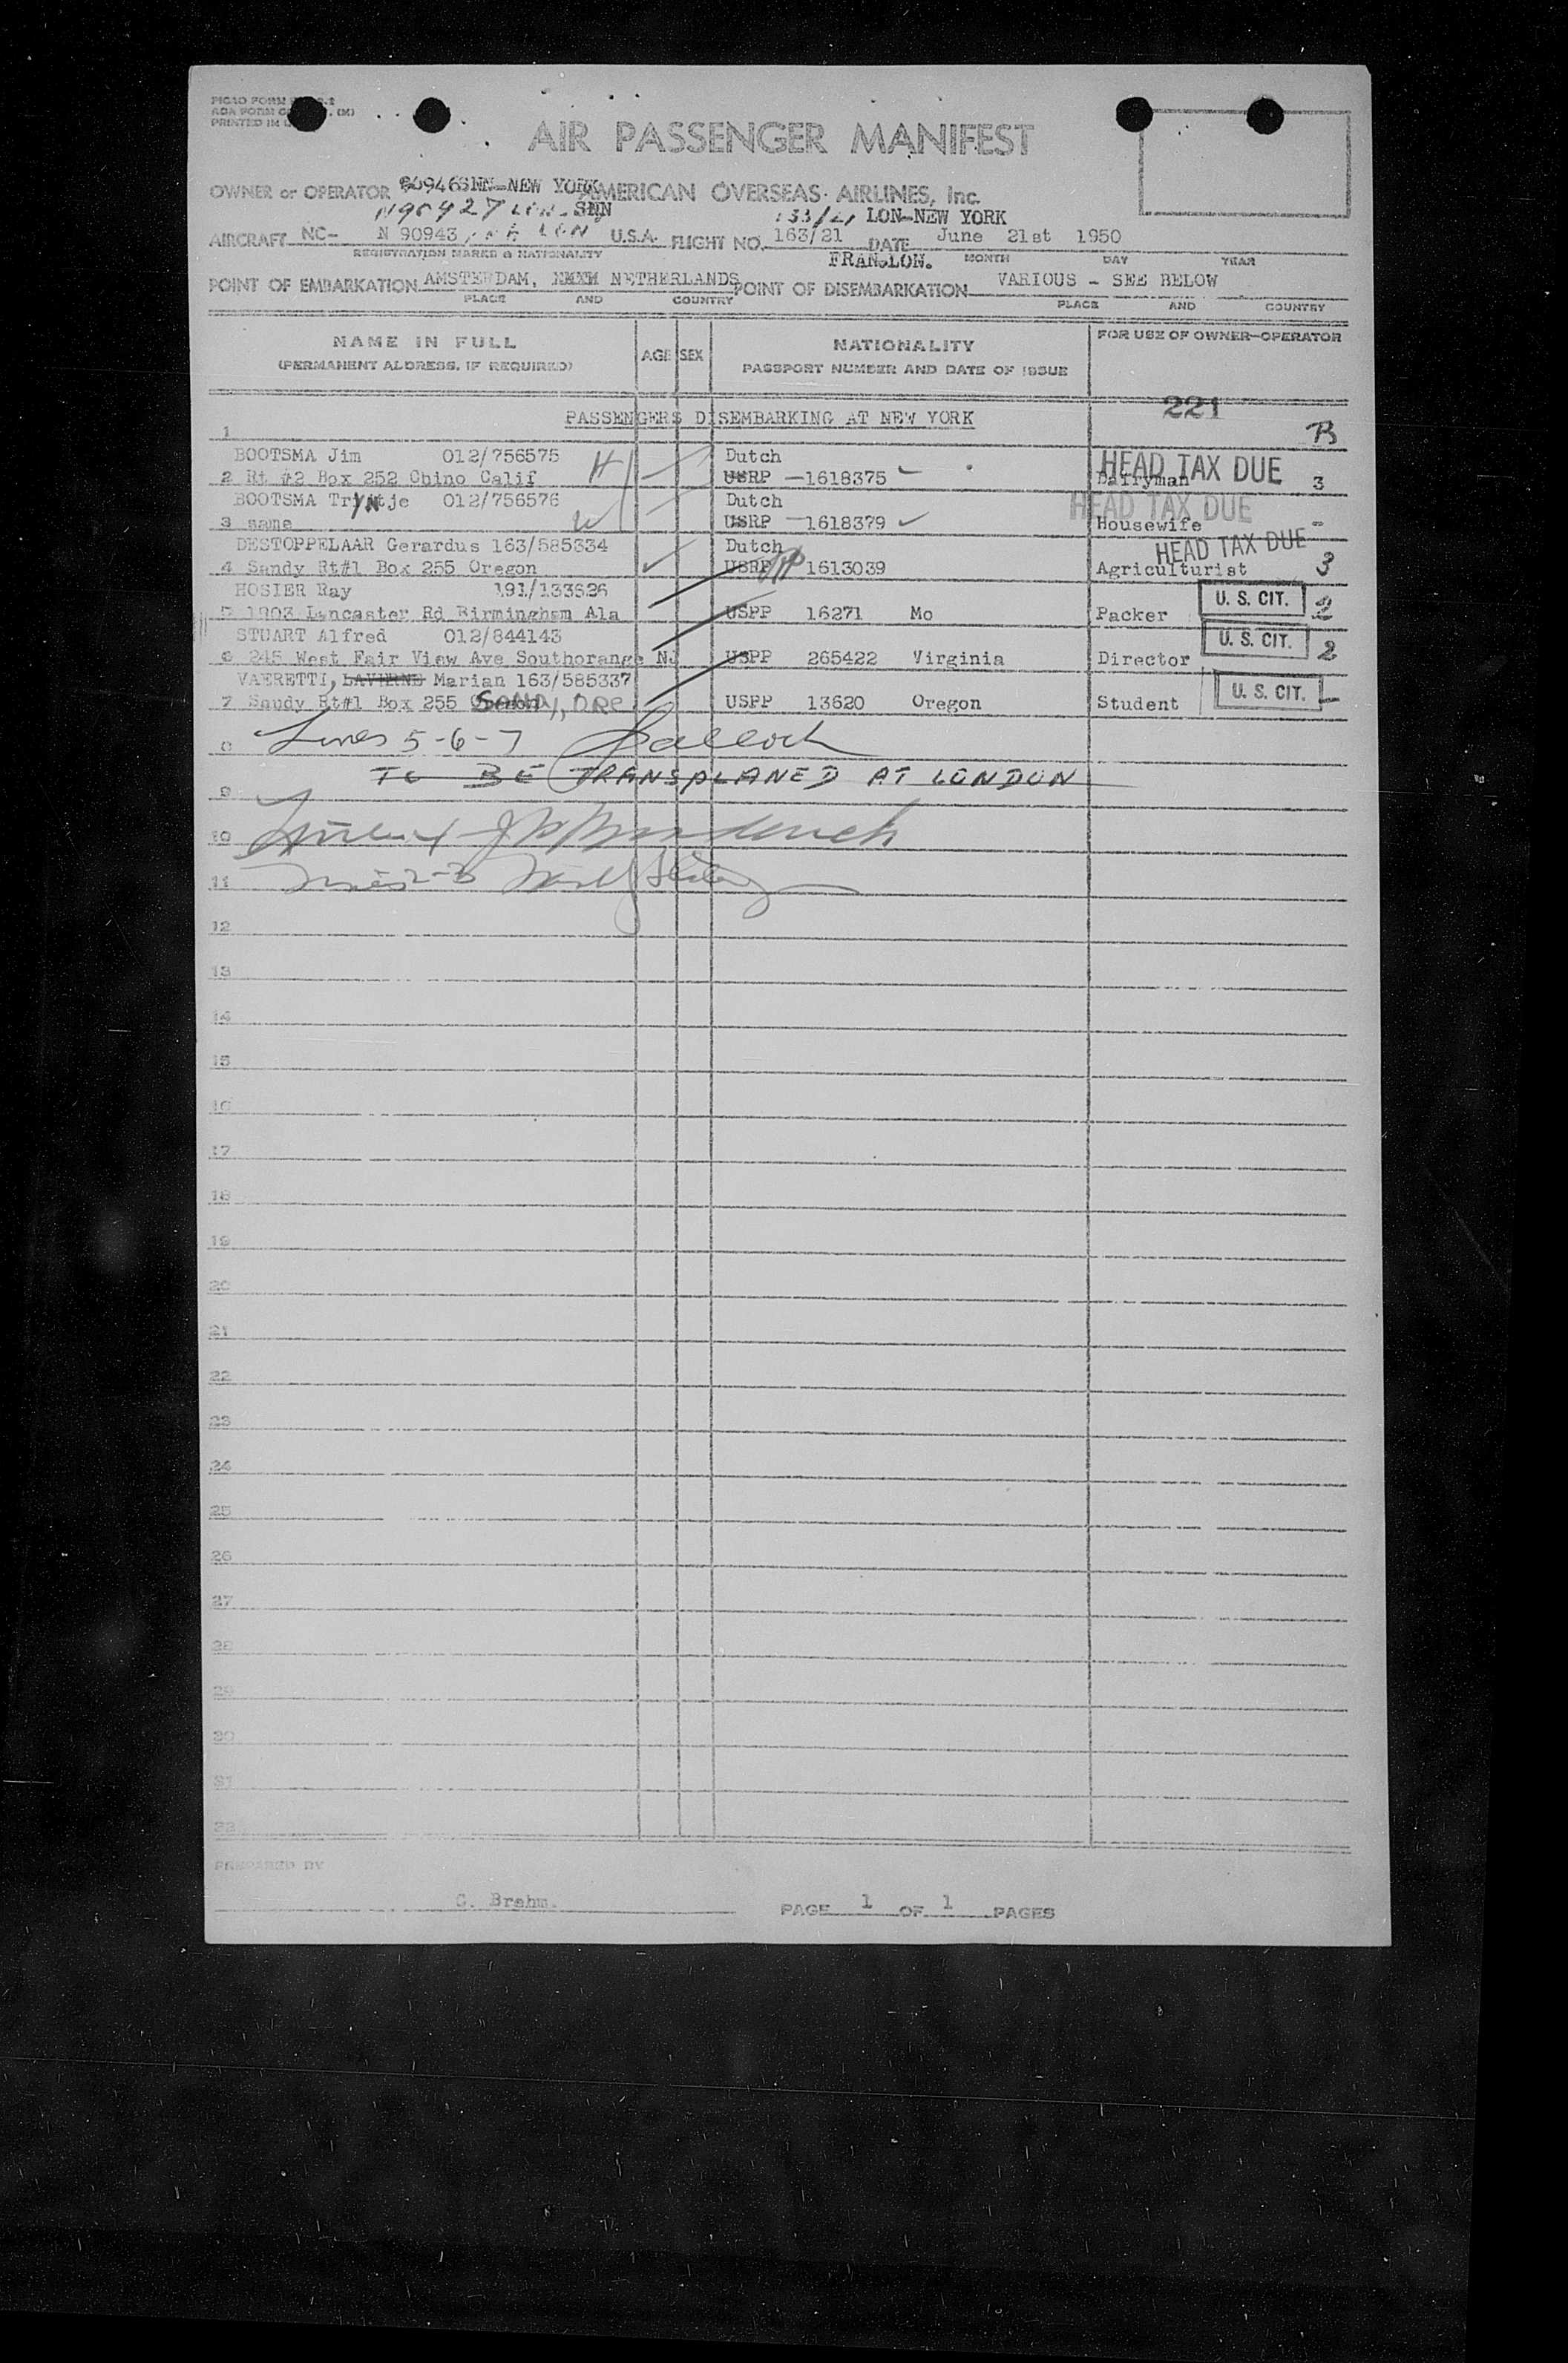 PRINTED IN
AIR PASSENGER MANIFEST
90946SNN-NEW YORK
OWNER or OPERATOR AMERICAN OVERSEAS AIRLINES, Inc.
N90927 LON-SNN 133/21 LON-NEW YORK
AIRCRAFT NC- N 90943 LON U.S.A. FLIGHT NO. 163/21 DATE June 21st 1950
REGISTRATION MARKS & NATIONALITY FRAN.LON. MONTH DAY YEAR
POINT OF EMBARKATION AMSTERDAM, NETHERLANDS POINT OF DISEMBARKATION VARIOUS - SEE BELOW
PLACE AND COUNTRY PLACE AND COUNTRY
NAME IN FULL
(PERMANENT ADDRESS, IF REQUIRED)
AGE SEX
NATIONALITY
PASSPORT NUMBER AND DATE OF ISSUE
FOR USE OF OWNER-OPERATOR
221
PASSENGERS DISEMBARKING AT NEW YORK
1 B
BOOTSMA Jim 012/756575 H Dutch HEAD TAX DUE
2 Rt #2 Box 252 Chino Calif USRP -1618375 Dairyman 3
BOOTSMA Tryntje 012/756576 Dutch HEAD TAX DUE
3 same W USRP -1618379 Housewife -
DESTOPPELAAR Gerardus 163/585334 Dutch HEAD TAX DUE
4 Sandy Rt#1 Box 255 Oregon USRP 1613039 Agriculturist 3
HOSIER Ray 191/133626 U. S. CIT.
5 1903 Lancaster Rd Birmingham Ala USPP 16271 Mo Packer 2
STUART Alfred 012/844143 U. S. CIT.
6 245 West Fair View Ave Southorange NJ USPP 265422 Virginia Director 2
VAERETTI, LAVERNE Marian 163/585337 U. S. CIT.
7 Saudy Rt#1 Box 255 SANDY, ORE USPP 13620 Oregon Student
8 Lines 5-6-7
TO BE TRANSPLANED AT LONDON
9
10
11
12
13
14
15
16
17
18
19
20
21
22
23
24
25
26
27
28
29
30
31
32
PREPARED BY
G. Brahm. PAGE 1 OF 1 PAGES